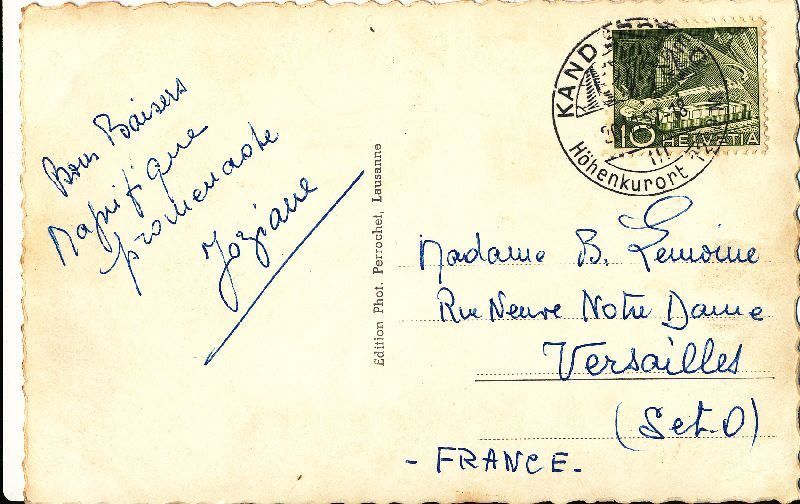 Bons Baisers
Magnifique
promenade
Joziane
Edition Phot. Perrochet, Lausanne
KAND
Höhenkurort
10 HELVETIA
Madame B. Lemoine
Rue Neuve Notre Dame
Versailles
(S et O)
- FRANCE -